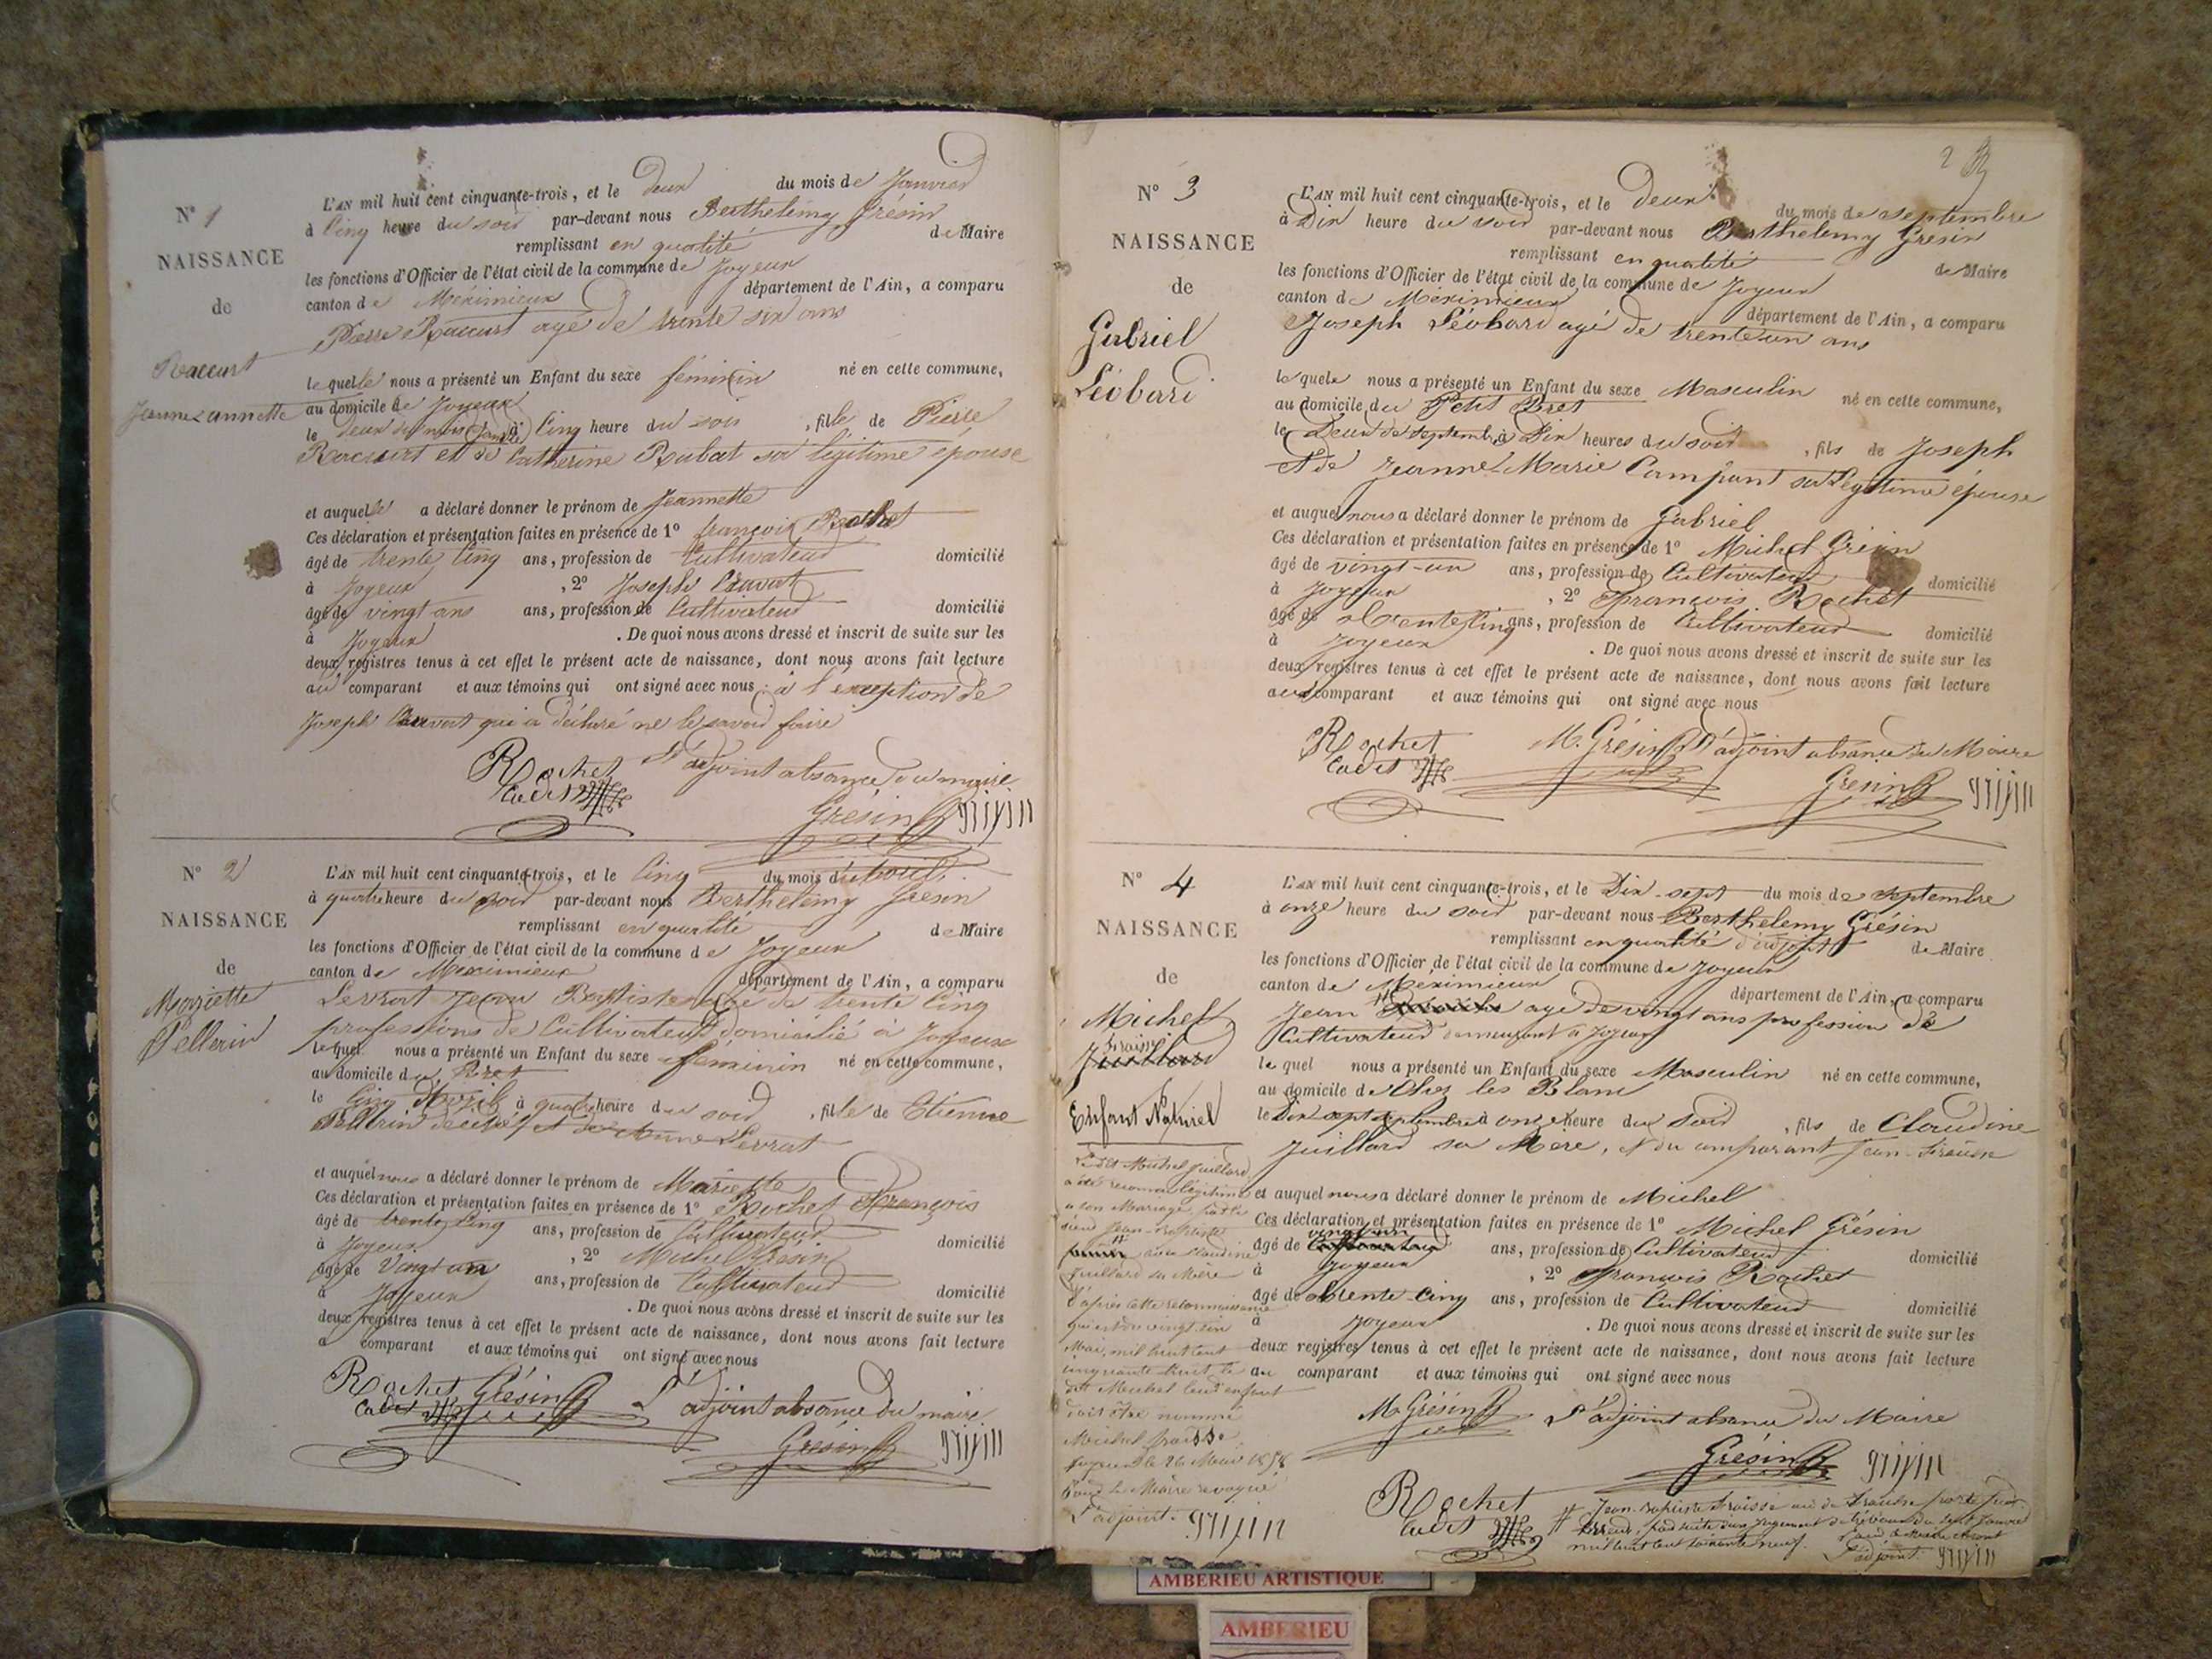 N° 1
NAISSANCE
de
Raccurt
Jeanne annette
L'AN mil huit cent cinquante-trois, et le deux du mois de Janvier
à Cinq heure du soir par-devant nous Berthelemy Grésin
remplissant en qualité de Maire
les fonctions d'Officier de l'état civil de la commune de Joyeux
canton de Méximieux département de l'Ain, a comparu
Pierre Raccurt agé de trente six ans
lequel nous a présenté un Enfant du sexe féminin né en cette commune,
au domicile de Joyeux
le deux du mois à Cinq heure du soir, fille de Pierre
Raccurt et de Catherine Rubat sa légitime épouse
et auquel a déclaré donner le prénom de Jeannette
Ces déclaration et présentation faites en présence de 1° françois Rochet
âgé de trente Cinq ans, profession de Cultivateur domicilié
à Joyeux, 2° Joseph
âgé de vingt ans ans, profession de Cultivateur domicilié
à Joyeux. De quoi nous avons dressé et inscrit de suite sur les
deux registres tenus à cet effet le présent acte de naissance, dont nous avons fait lecture
au comparant et aux témoins qui ont signé avec nous à l'exception de
Joseph qui a déclaré ne le savoir faire
Rochet L'adjoint absance du maire
Cadet Grésin
N° 2
NAISSANCE
de
Mariette
Pellerin
L'AN mil huit cent cinquante-trois, et le Cinq du mois d'avril
à quatre heure du soir par-devant nous Berthelemy Gresin
remplissant en qualité de Maire
les fonctions d'Officier de l'état civil de la commune de Joyeux
canton de Meximieux département de l'Ain, a comparu
Levrat Jean Baptiste agé de trente Cinq
professions de Cultivateur domicilié à Joyeux
lequel nous a présenté un Enfant du sexe féminin né en cette commune,
au domicile du Bret
le Cinq Avril à quatre heure du soir, fille de Etienne
Pellerin décédé et de Anne Levrat
et auquel nous a déclaré donner le prénom de Mariette
Ces déclaration et présentation faites en présence de 1° Rochet François
âgé de trente Cinq ans, profession de Cultivateur domicilié
à Joyeux, 2° Michel Gresin
âgé de Vingt un ans, profession de Cultivateur domicilié
à Joyeux. De quoi nous avons dressé et inscrit de suite sur les
deux registres tenus à cet effet le présent acte de naissance, dont nous avons fait lecture
a comparant et aux témoins qui ont signé avec nous
Rochet Grésin L'adjoint absance du maire
Cadet Gresin
2
N° 3
NAISSANCE
de
Gabriel
Léobard
L'AN mil huit cent cinquante-trois, et le deux du mois de septembre
à Dix heure du soir par-devant nous Berthelemy Gresin
remplissant en qualité de Maire
les fonctions d'Officier de l'état civil de la commune de Joyeux
canton de Meximieux département de l'Ain, a comparu
Joseph Léobard agé de trente un ans
lequel nous a présenté un Enfant du sexe Masculin né en cette commune,
au domicile du Petit Bret
le Deux de septemb à Dix heures du soir, fils de Joseph
et de Jeanne Marie Campant sa Légitime épouse
et auquel nous a déclaré donner le prénom de Gabriel
Ces déclaration et présentation faites en présence de 1° Michel Grésin
âgé de vingt-un ans, profession de Cultivateur domicilié
à Joyeux, 2° François Rochet
âgé de trente Cinq ans, profession de Cultivateur domicilié
à Joyeux. De quoi nous avons dressé et inscrit de suite sur les
deux registres tenus à cet effet le présent acte de naissance, dont nous avons fait lecture
au comparant et aux témoins qui ont signé avec nous
Rochet M. Grésin L'adjoint absance du Maire
Cadet Gresin
N° 4
NAISSANCE
de
Michel
Fraisse
Juillard
Enfant Naturel
L'AN mil huit cent cinquante-trois, et le Dix-sept du mois de Septembre
à onze heure du soir par-devant nous Berthelemy Grésin
remplissant en qualité d'adjoint de Maire
les fonctions d'Officier de l'état civil de la commune de Joyeux
canton de Méximieux département de l'Ain, a comparu
Jean agé de vingt ans profession de
Cultivateur demeurant a Joyeux
lequel nous a présenté un Enfant du sexe Masculin né en cette commune,
au domicile de Chez les Blanc
le Dix sept septembre à onze heure du Soir, fils de Claudine
Juillard sa Mère, et du comparant Jean
et auquel nous a déclaré donner le prénom de Michel
Ces déclaration et présentation faites en présence de 1° Michel Grésin
âgé de vingt un ans, profession de Cultivateur domicilié
à Joyeux, 2° François Rochet
âgé de trente Cinq ans, profession de Cultivateur domicilié
à Joyeux. De quoi nous avons dressé et inscrit de suite sur les
deux registres tenus à cet effet le présent acte de naissance, dont nous avons fait lecture
au comparant et aux témoins qui ont signé avec nous
M. Grésin L'adjoint absance du Maire
Grésin
Rochet
Cadet
Ledit Michel Juillard
a été reconnu légitime
a son Mariage
sieur Jean-Baptiste
avec Claudine
Juillard sa Mère
d'après cette reconnaissance
qui est du vingt six
Mai, mil huit cent
cinquante huit le
dit Michel leur enfant
doit être nommé
Michel fraisse
Joyeux le 26 Mai 1858
Pour le Maire révoqué
L'adjoint
Jean-Baptiste Fraisse
erreur, jugement du tribunal du sept Janvier
mil huit cent soixante neuf.
L'adjoint
AMBERIEU ARTISTIQUE
AMBERIEU